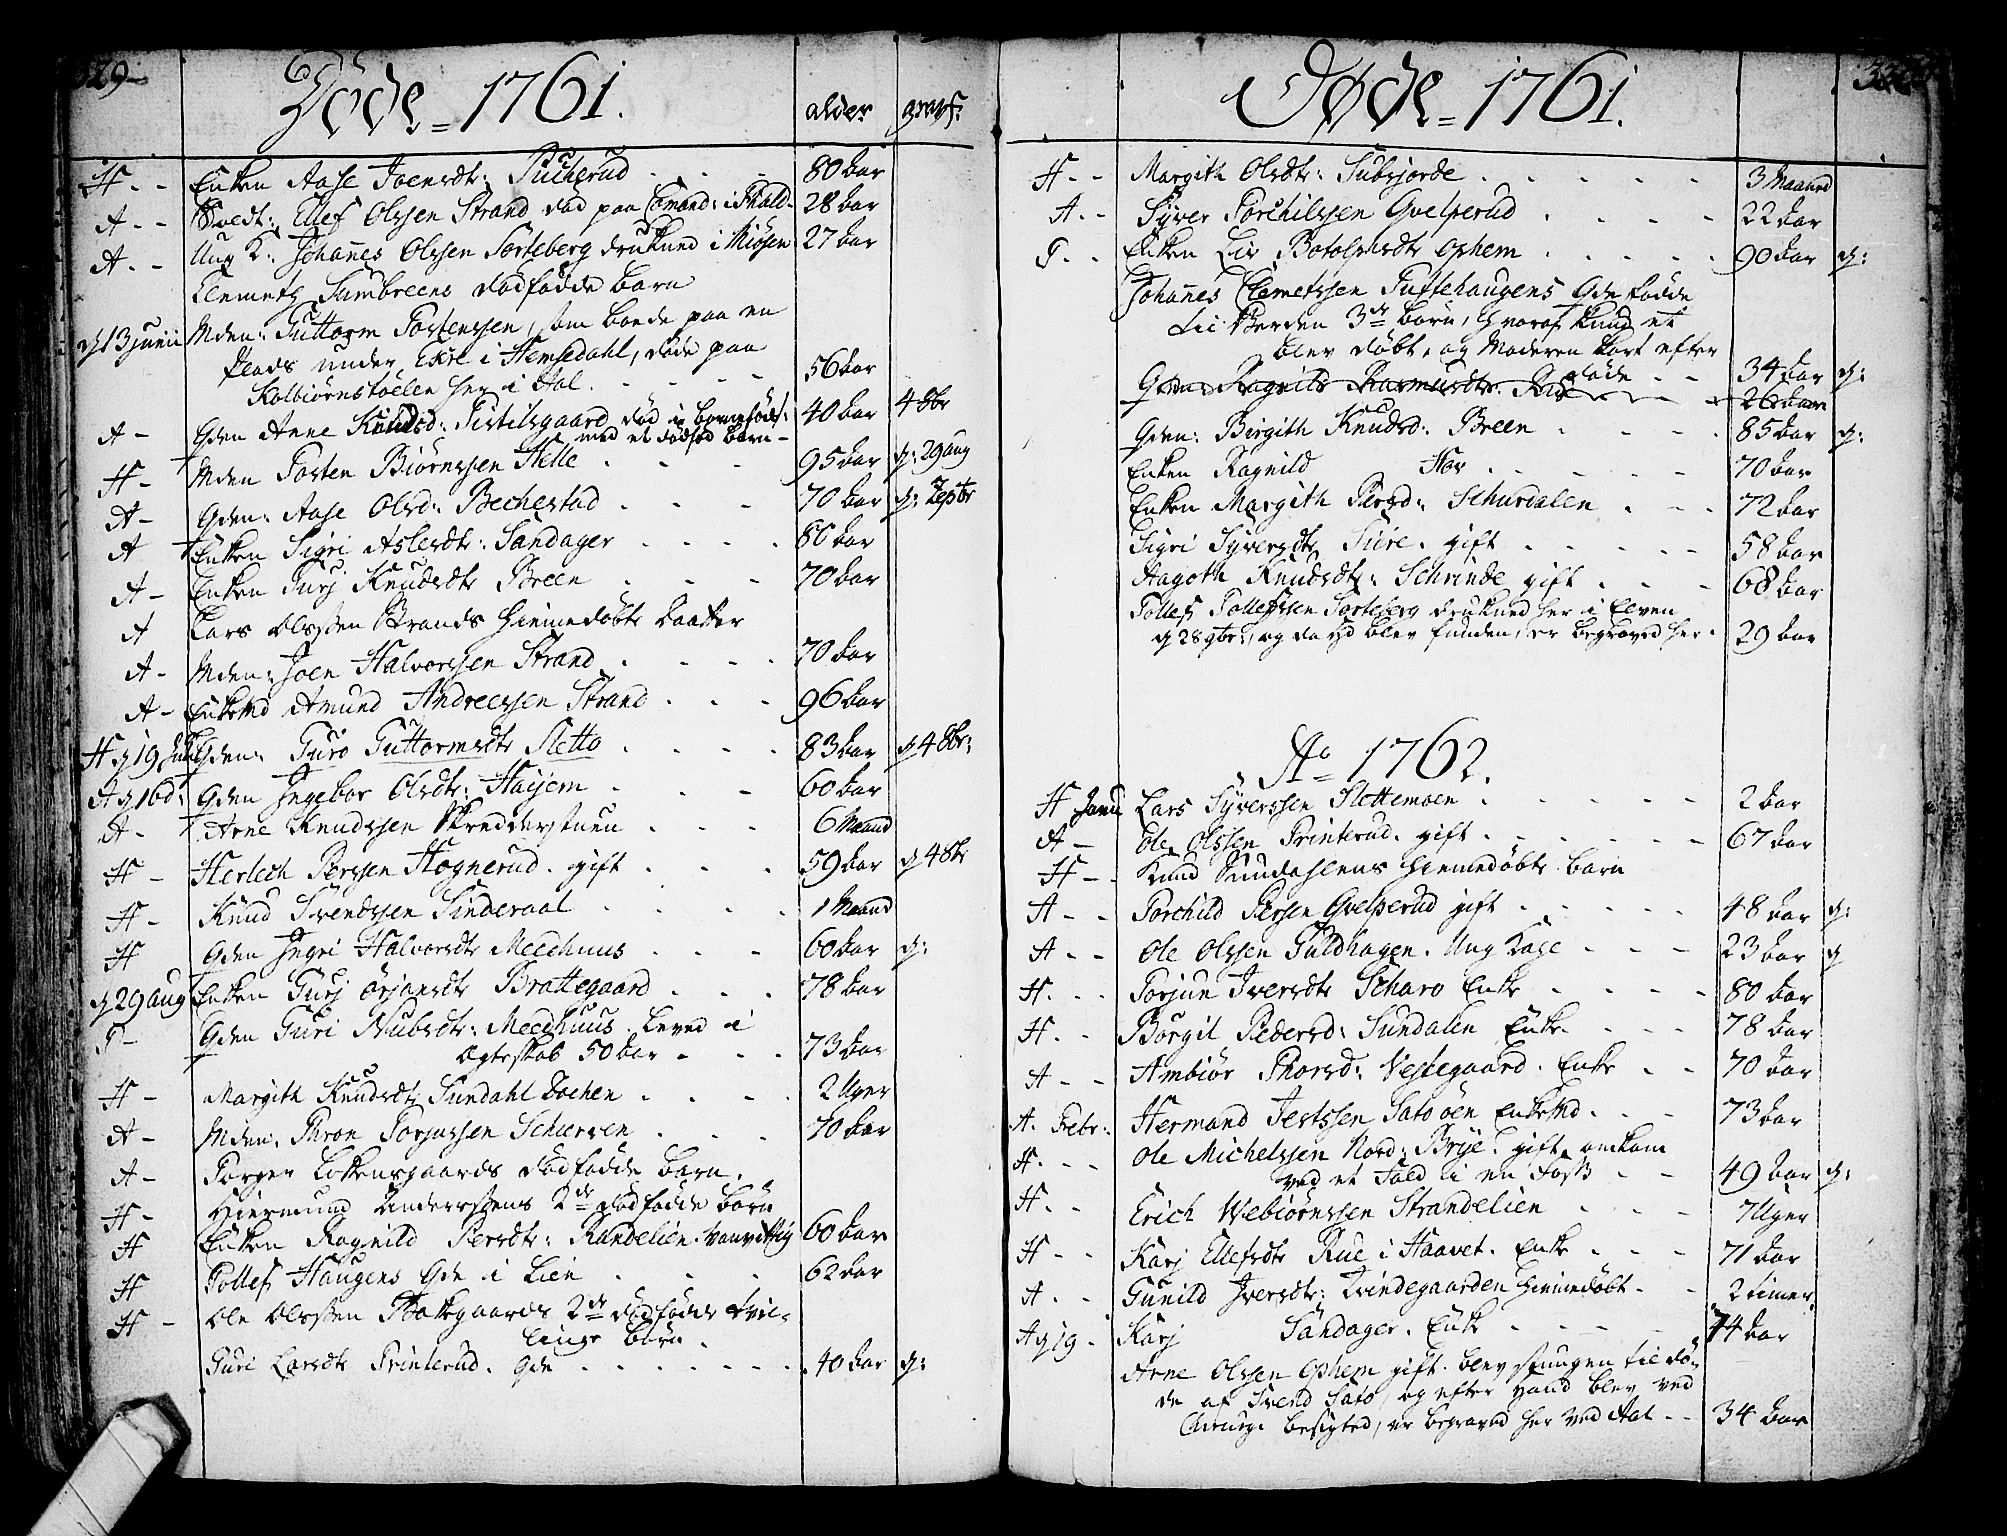 329
Døde = 1761.
alder
gravf:
H - - Enken Aase Joensdtr: Pucherud 80 aar
A - - Soldt: Ellef Olssen Strand død paa Comand: i Frald- 28 aar
A. - - Ung K. Johañes Olssen Torteberg druknede i Miøsen 27 aar
Clemeth Sumbreens dødfødde barn
d 13 junii Mden: Guttorm Torstenssen, som boede paa en
Plads under Ekre i Hemsedahl, døde paa
Kolbiørnstøelen her i Aal. 56 aar
A - Gden Anne Knudsd: Tistilsgaard død i barnefødsl:
med et dødfød barn - 40 aar 4 8br
H - Mden Torsten Biørnssen Helle 95 aar d: 29 aug
A - Gden: Aase Olsd: Bechestad 70 aar d: 7eptr
A Enken Sigri Aslesdtr: Sandager 80 aar
A - Enken Turj Knudsdtr Breen 70 aar
A Lars Olssen Strands hiemedøbte daatter
A - Mden: Joen Halvorssen Strand 70 aar
A - Enkemd Amund Andreessen Strand 96 aar
H d 19 Gden: Guro Guttormsdtr Sletto 83 aar d 4 8br:
A d 16 d: Gden Ingebor Olsdtr: Haijem 60 aar
A - Arne Knudssen Skredderstuen 6 Maand
H - Herlech Perssen Hognerud. gift 59 aar d 4 8br
H - Knud Svendssen Sinderaal 1 Maand
H Gden Ingri Halvorsdtr Meedhuus 60 aar d:
d 29 aug Enken Gurj Ørjansdtr Brattegaard 78 aar
T - Gden Guri Nubsdtr: Meedhuus. Leved i
Ægteskab 50 aar - 73 aar
H - Margith Knudsdtr Sundahl Lochen 2 Uger
A - Mden: Thron Torjussen Schurven 70 aar
A - Torger Lochensgaards dødfødde barn.
H - Hiermund Anderssens 2de dødfødde børn
H Enken Ragnild Persdtr: Randelien. vanvittig 60 aar
H Tollef Haugens Gde i Lien 62 aar
H - Ole Olssen Bakkegaards 2de dødfødde tvil-
linge børn.
Guri Larsdtr Trinterud. Gde 40 aar d:
330
Døde = 1761.
H - - Margith Olsdtr: Subrjorde 3 Maaned
A. - Syver Torchilssen Gvelperud 22 aar
T. - Enken Liv Botolphsdtr Ophem 90 aar d:
Johañes Clemetssen Tuftehaugens Gde fødde
til Verden 3de børn, hvoraf Kund et
blev døbt, og Moderen kort efter
døde - - 34 aar d:
Gden Ragnild Rasmusdtr. 26 aar
Gden: Birgith Knudsd: Breen 85 aar d:
Enken Ragnild Hov 70 aar
Enken Margith Persd: Schurdalen 72 aar
Sigri Syversdtr Sire. gift 58 aar
Aagoth Knudsdtr: Schrinde gift 68 aar
Tollef Tollefssen Torteberg druknede her i Elven
d 28 9br:, og da hd blev funden, er begraved her. 29 aar
Ao 1762.
H Janu Lars Syverssen Slettemoen 2 aar
A - Ole Olssen Trinterud. gift 67 aar
H - - Knud Sundahlens hiemedøbte barn
A - - Torchild Persen Gvelperud gift 48 aar d:
A - - Ole Olssen Guldhagen. Ung Karl 23 aar d
H. - - Torjun Iversdtr Scharo Enke 80 aar
H. - Borgil Pedersd: Sundalen Enke. 78 aar
A - - Ambiør Thorsd: Vestegaard. Enke 70 aar
A. Febr: Hermand Jertssen Satoøen Enkemd. 73 aar
H. - - Ole Michelssen Nord: Brye. gift, omkom
ved et Fald i en Foss 49 aar d:
H. - Erich Webiørnssen Strandelien 7 Uger
H - - Karj Ellefsdtr Rue i Haavet. Enke 71 aar
A. - Gunild Iversdtr: Qvindegaarden hiemedøbt. 2 timer
A d 19 - Karj Sandager. Enke 74 aar
Arne Olssen Ophem gift. blev stungen til dø-
de af Svend Sato, og efter hand blev ved
Chirurgi besigted, er begraved her ved Aal - - 34 aar